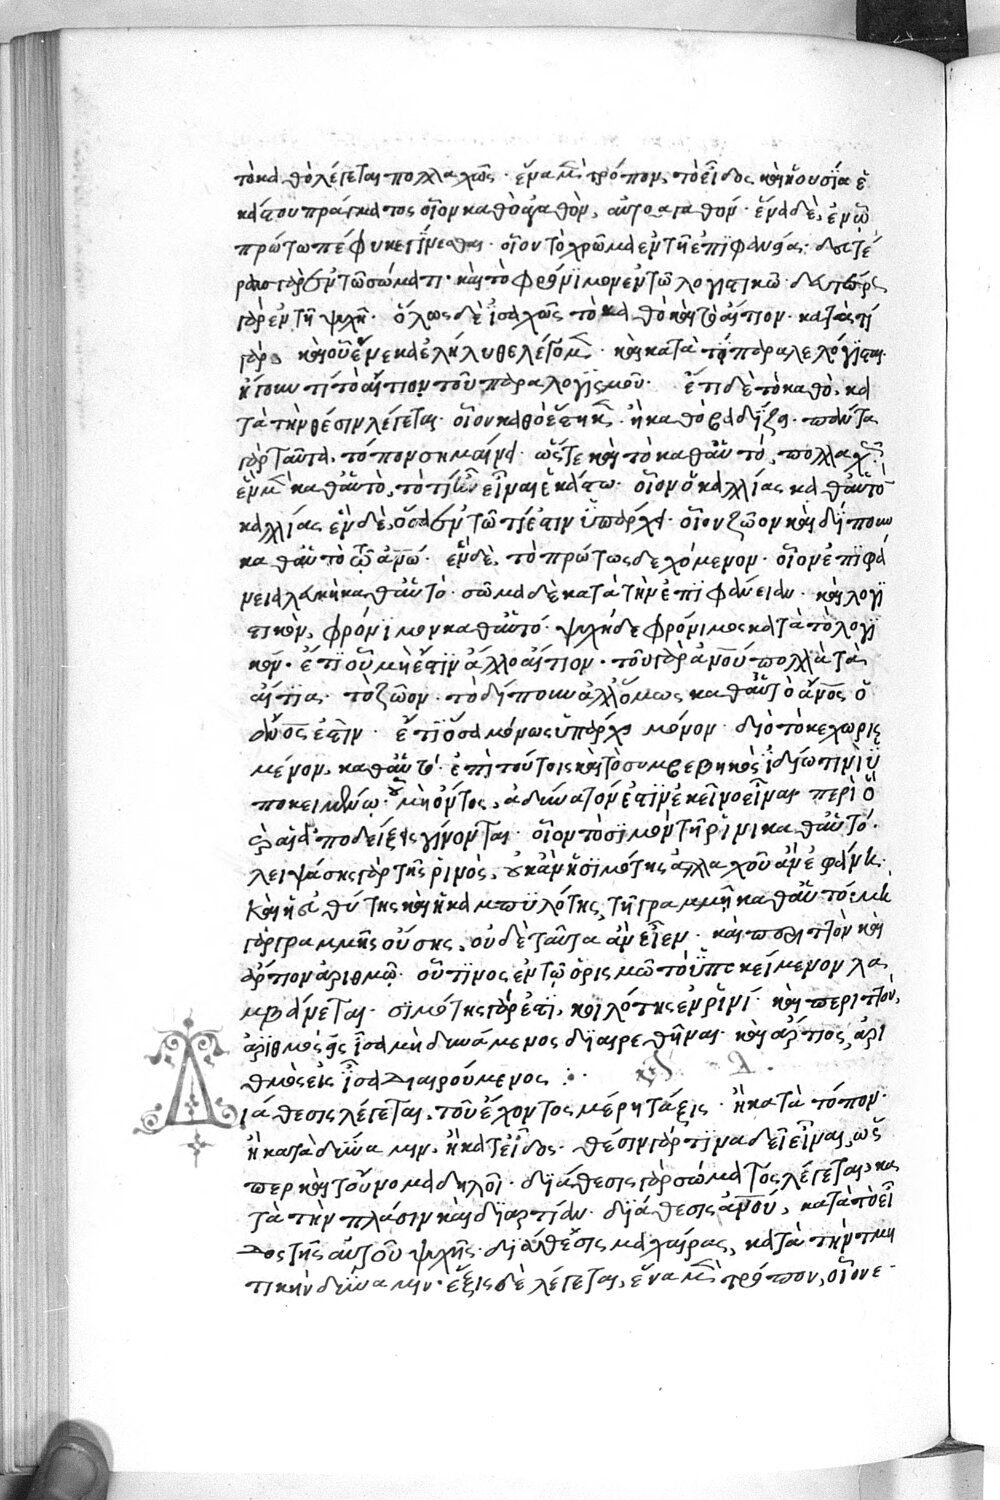 τὸ καθὸ λέγεται πολλαχῶς · ἕνα μὲν τρόπον, τὸ εἶδος καὶ ἡ οὐσία ἑ
κάστου πράγματος οἷον καθὸ ἀγαθὸν, αὐτοαγαθόν · ἕνα δὲ, ἐν ᾧ
πρώτω πέφυκε γίνεσθαι · οἷον τὸ χρῶμα ἐν τῆ ἐπϊφανεία · δευτέ
ρως γὰρ ἐν τῶ σώματι · καὶ τὸ φρόνϊμον ἐν τῶ λογιστικῶ · δευτέρως
γὰρ ἐν τῆ ψυχῆ · ὅλως δὲ ἰσαχῶς τὸ καθὸ καὶ τὸ αἴτιον · κατὰ τί
γὰρ καὶ οὗ ἕνεκα ἐλήλυθε λέγομεν · καὶ κατὰ τί παραλελόγϊσται
ἤγουν τί τὸ αἴτιον τοῦ παραλογϊσμοῦ · ἔτι δὲ τὸ καθὸ, κα
τὰ τὴν θέσιν λέγεται · οἷον καθὸ ἕστηκεν · ἢ καθὸ βαδίζει · πάντα
γὰρ ταῦτα, τόπον σημαίνει · ὥστε καὶ τὸ καθαὑτὸ, πολλαχῶς
ἓν μὲν καθαὑτὸ, τὸ τί ἦν εἶναι ἑκάστω · οἷον ὁ καλλίας καθαὑτὸ
καλλίας ἓν δὲ, ὅσα ἐν τῶ τί ἐστιν ὑπάρχει · οἷον ζῶον καὶ δίπουν
καθαὑτὸ τῶ ἀνῶ · ἓν δὲ, τὸ πρώτως δεχόμενον · οἷον ἐπϊφά
νεια λευκὴ καθαὑτό · σῶμα δὲ κατὰ τὴν ἐπϊφάνειαν · καὶ λογϊ
στικὸν, φρόνϊμον καθαὑτό · ψυχὴ δὲ φρόνιμος κατὰ τὸ λογϊ
κόν · ἔτϊ οὗ μὴ ἔστϊν ἄλλο αἴτιον · τοῦ γὰρ ἀνοῦ πολλὰ τὰ
αἴτϊα · τὸ ζῶον · τὸ δίπουν ἀλλ' ὅμως καθαὑτὸ ἄνος ὁ
ἄνος ἐστὶν · ἔτϊ ὅσα μόνως ὑπάρχει μόνον · διὸ τὸ κεχωρισ
μένον, καθαὑτό · ἐπὶ τούτοις καὶ τὸ συμβεβηκὸς ἰδίω τινὶ ὑ
ποκειμένω · οὗ μὴ ὄντος, ἀδύνατόν ἐστϊν ἐκεῖνο εἶναι περὶ ὃ
αἱ ἀποδείξεις γίνονται · οἷον τὸ σϊμὸν τῆ ῥινὶ καθαὑτό ·
λειψάσης γὰρ τῆς ῥινὸς, οὐκ ἂν ἡ σϊμότης ἀλλαχοῦ ἀνεφάνη ·
καὶ ἡ εὐθύτης καὶ ἡ καμπϋλότης, τῆ γραμμῆ καθαὑτό · μὴ
γὰρ γραμμῆς οὔσης, οὐδὲ ταῦτα ἂν εἶεν · καὶ περιττὸν καὶ
ἄρτιον ἀριθμῶ · οὗ τϊνος ἐν τῶ ὁρισμῶ τὸ ὑποκείμενον λα
μβάνεται · σϊμότης γάρ ἐστϊ, κοιλότης ἐν ῥϊνί · καὶ περιττὸν,
ἀριθμὸς εἰς ἴσα μὴ δυνάμενος διαιρεθῆναι · καὶ ἄρτιος, ἀρι
θμὸς εἰς ἴσα διαιρούμενος :·
Διάθεσις λέγεται, τοῦ ἔχοντος μέρη τάξις · ἢ κατὰ τόπον ·
ἢ κατὰ δύναμιν, ἢ κατ' εἶδος · θέσιν γάρ τϊνα δεῖ εἶναι, ὥσ
περ καὶ τοὔνομα δηλοῖ · διάθεσις γὰρ σώματός λέγεται, κα
τὰ τὴν πλάσιν καὶ διαρτίαν · διάθεσις ἀνοῦ, κατὰ τὸ εἶ
δος τῆς αὐτοῦ ψυχῆς · διάθεσις μαχαίρας, κατὰ τὴν τμη
τικὴν δύναμιν · ἕξις δὲ λέγεται, ἕνα μὲν τρόπον, οἷον ἐ